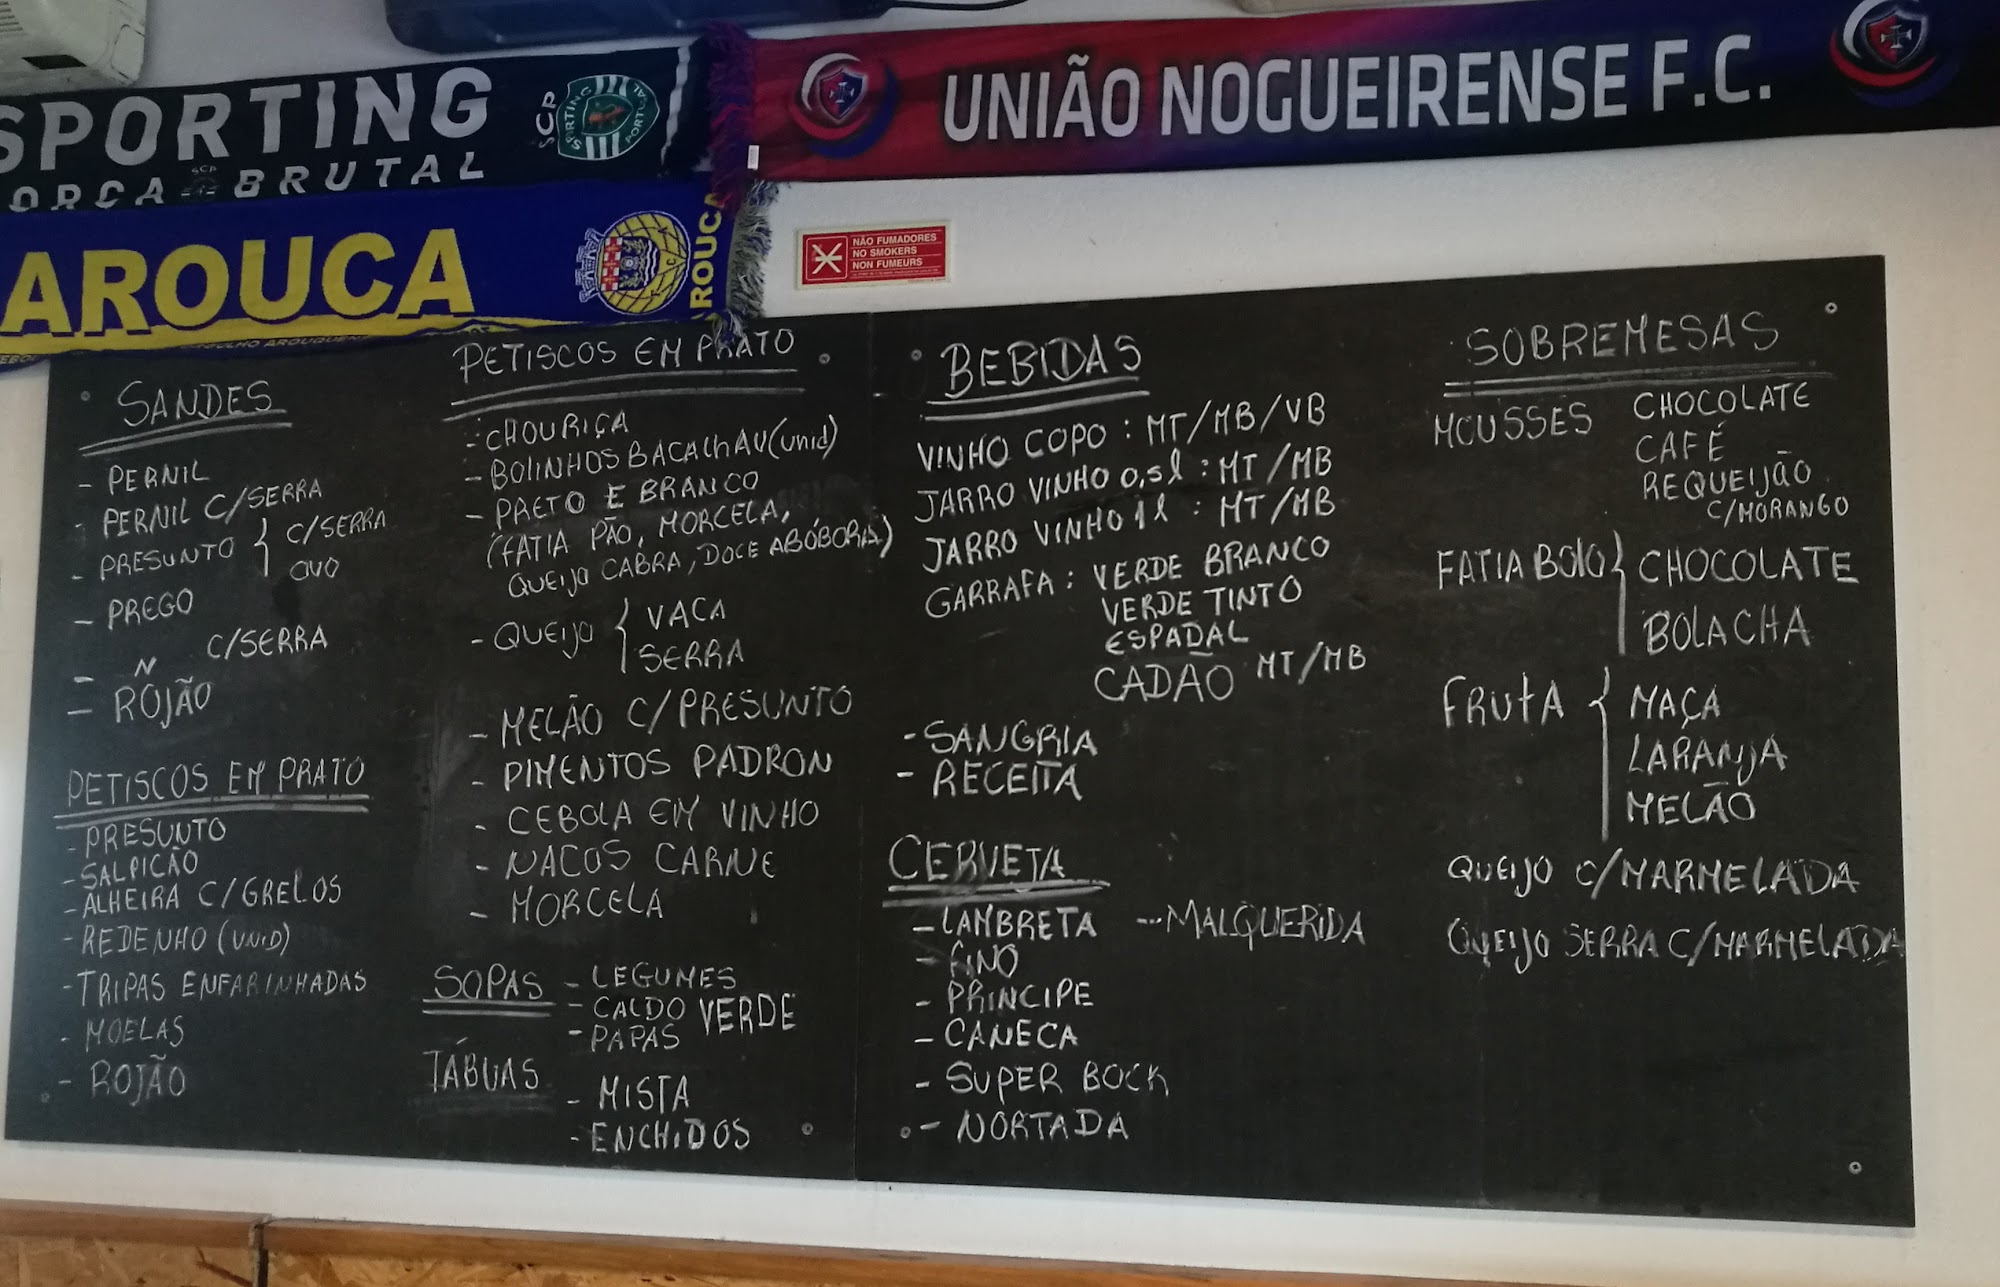 SPORTING
SCP
SPORTING
PORTUGAL
FORÇA SCP BRUTAL
AROUCA
AROUCA
UNIÃO NOGUEIRENSE F.C.
NÃO FUMADORES
NO SMOKERS
NON FUMEURS
SANDES
- PERNIL
- PERNIL C/SERRA
- PRESUNTO { C/SERRA
OVO
- PREGO
- N C/SERRA
- ROJÃO
PETISCOS EM PRATO
- PRESUNTO
- SALPICÃO
- ALHEIRA C/GRELOS
- REDENHO (UNID)
- TRIPAS ENFARINHADAS
- MOELAS
- ROJÃO
PETISCOS EM PRATO
- CHOURIÇA
- BOLINHOS BACALHAU (unid)
- PRETO E BRANCO
(FATIA PÃO, MORCELA,
QUEIJO CABRA, DOCE ABÓBORA)
- QUEIJO { VACA
SERRA
- MELÃO C/PRESUNTO
- PIMENTOS PADRON
- CEBOLA EM VINHO
- NACOS CARNE
- MORCELA
SOPAS - LEGUMES
- CALDO VERDE
- PAPAS
TÁBUAS
- MISTA
- ENCHIDOS
BEBIDAS
VINHO COPO : MT/MB/VB
JARRO VINHO 0,5l : MT/MB
JARRO VINHO 1l : MT/MB
GARRAFA : VERDE BRANCO
VERDE TINTO
ESPADAL
CADÃO MT/MB
- SANGRIA
- RECEITA
CERVEJA
- LAMBRETA --- MALQUERIDA
- FINO
- PRINCIPE
- CANECA
- SUPER BOCK
- NORTADA
SOBREMESAS
MOUSSES CHOCOLATE
CAFÉ
REQUEIJÃO
C/MORANGO
FATIA BOLO { CHOCOLATE
BOLACHA
FRUTA { MAÇA
LARANJA
MELÃO
QUEIJO C/MARMELADA
QUEIJO SERRA C/MARMELADA